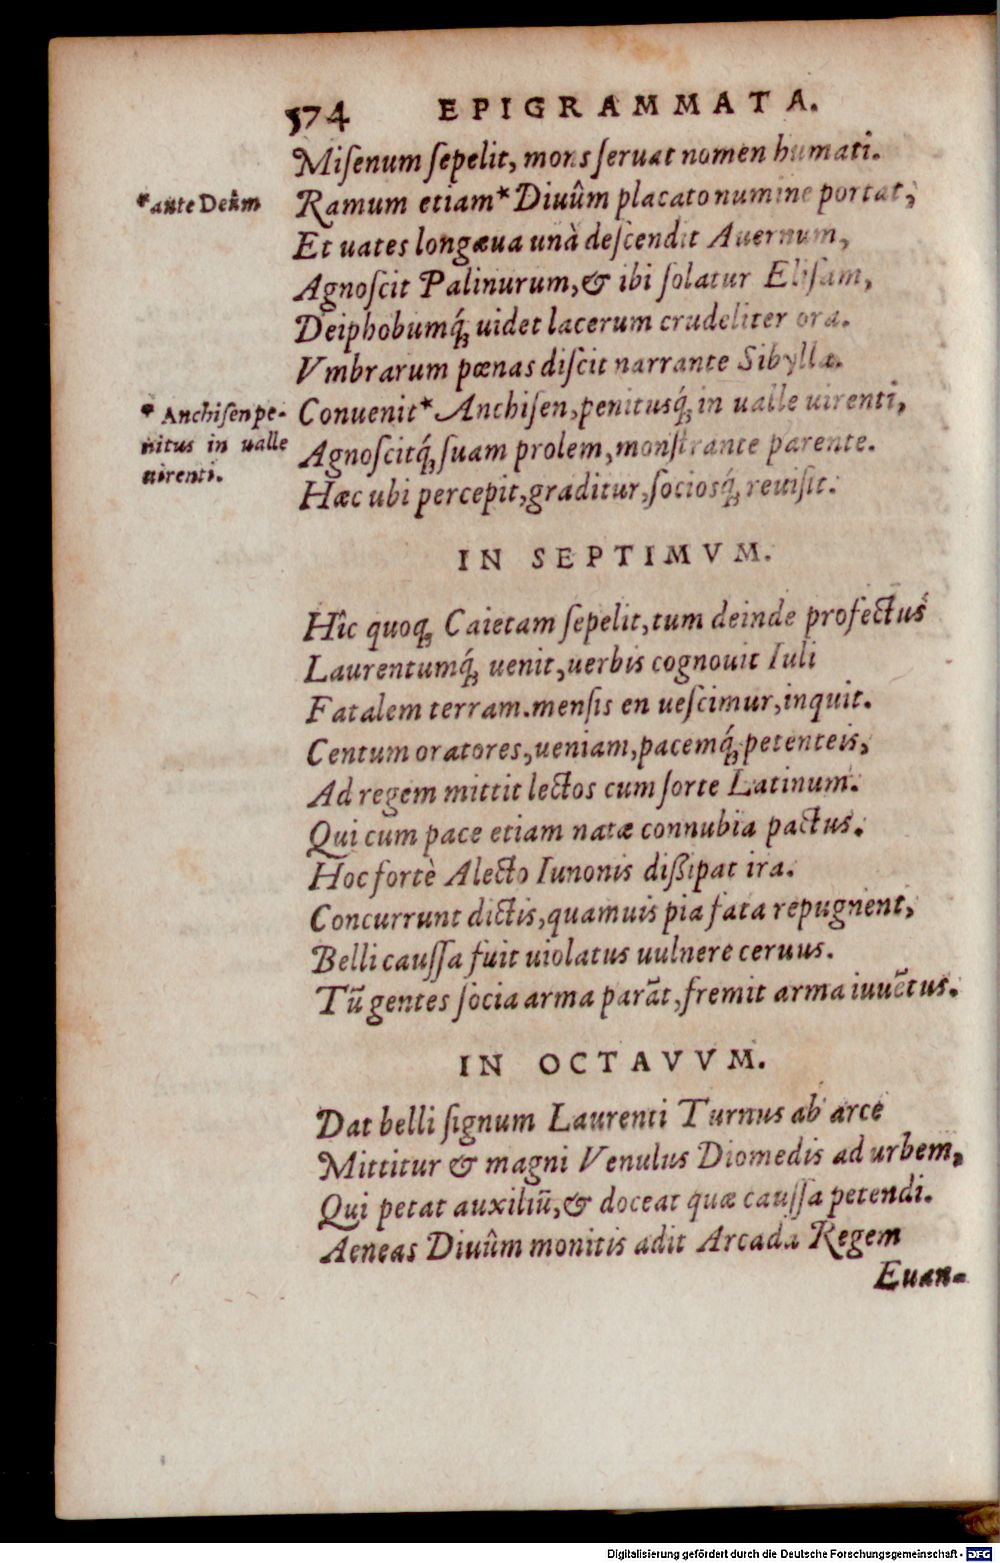 574 EPIGRAMMATA.
Miſenum ſepelit, mons ſeruat nomen humati.
*ante Deûm
Ramum etiam* Diuûm placato numine portat,
Et uates longæua unà deſcendit Auernum,
Agnoſcit Palinurum, & ibi ſolatur Eliſam,
Deiphobumq́; uidet lacerum crudeliter ora.
Vmbrarum pœnas diſcit narrante Sibylla.
* Anchiſen pe-
nitus in ualle
uirenti.
Conuenit* Anchiſen, penitusq́; in ualle uirenti,
Agnoſcitq́; ſuam prolem, monſtrante parente.
Hæc ubi percepit, graditur, ſociosq́; reuiſit.
IN SEPTIMVM.
Hîc quoq; Caietam ſepelit, tum deinde profectus
Laurentumq́; uenit, uerbis cognouit Iuli
Fatalem terram. menſis en ueſcimur, inquit.
Centum oratores, ueniam, pacemq́; petenteis,
Ad regem mittit lectos cum ſorte Latinum.
Qui cum pace etiam natæ connubia pactus.
Hoc fortè Alecto Iunonis diſsipat ira.
Concurrunt dictis, quamuis pia fata repugnent,
Belli cauſſa fuit uiolatus uulnere ceruus.
Tū gentes ſocia arma parāt, fremit arma iuuētus.
IN OCTAVVM.
Dat belli ſignum Laurenti Turnus ab arce
Mittitur & magni Venulus Diomedis ad urbem,
Qui petat auxiliū, & doceat quæ cauſſa petendi.
Aeneas Diuûm monitis adit Arcada Regem
Euan-
Digitalisierung gefördert durch die Deutsche Forschungsgemeinschaft - DFG